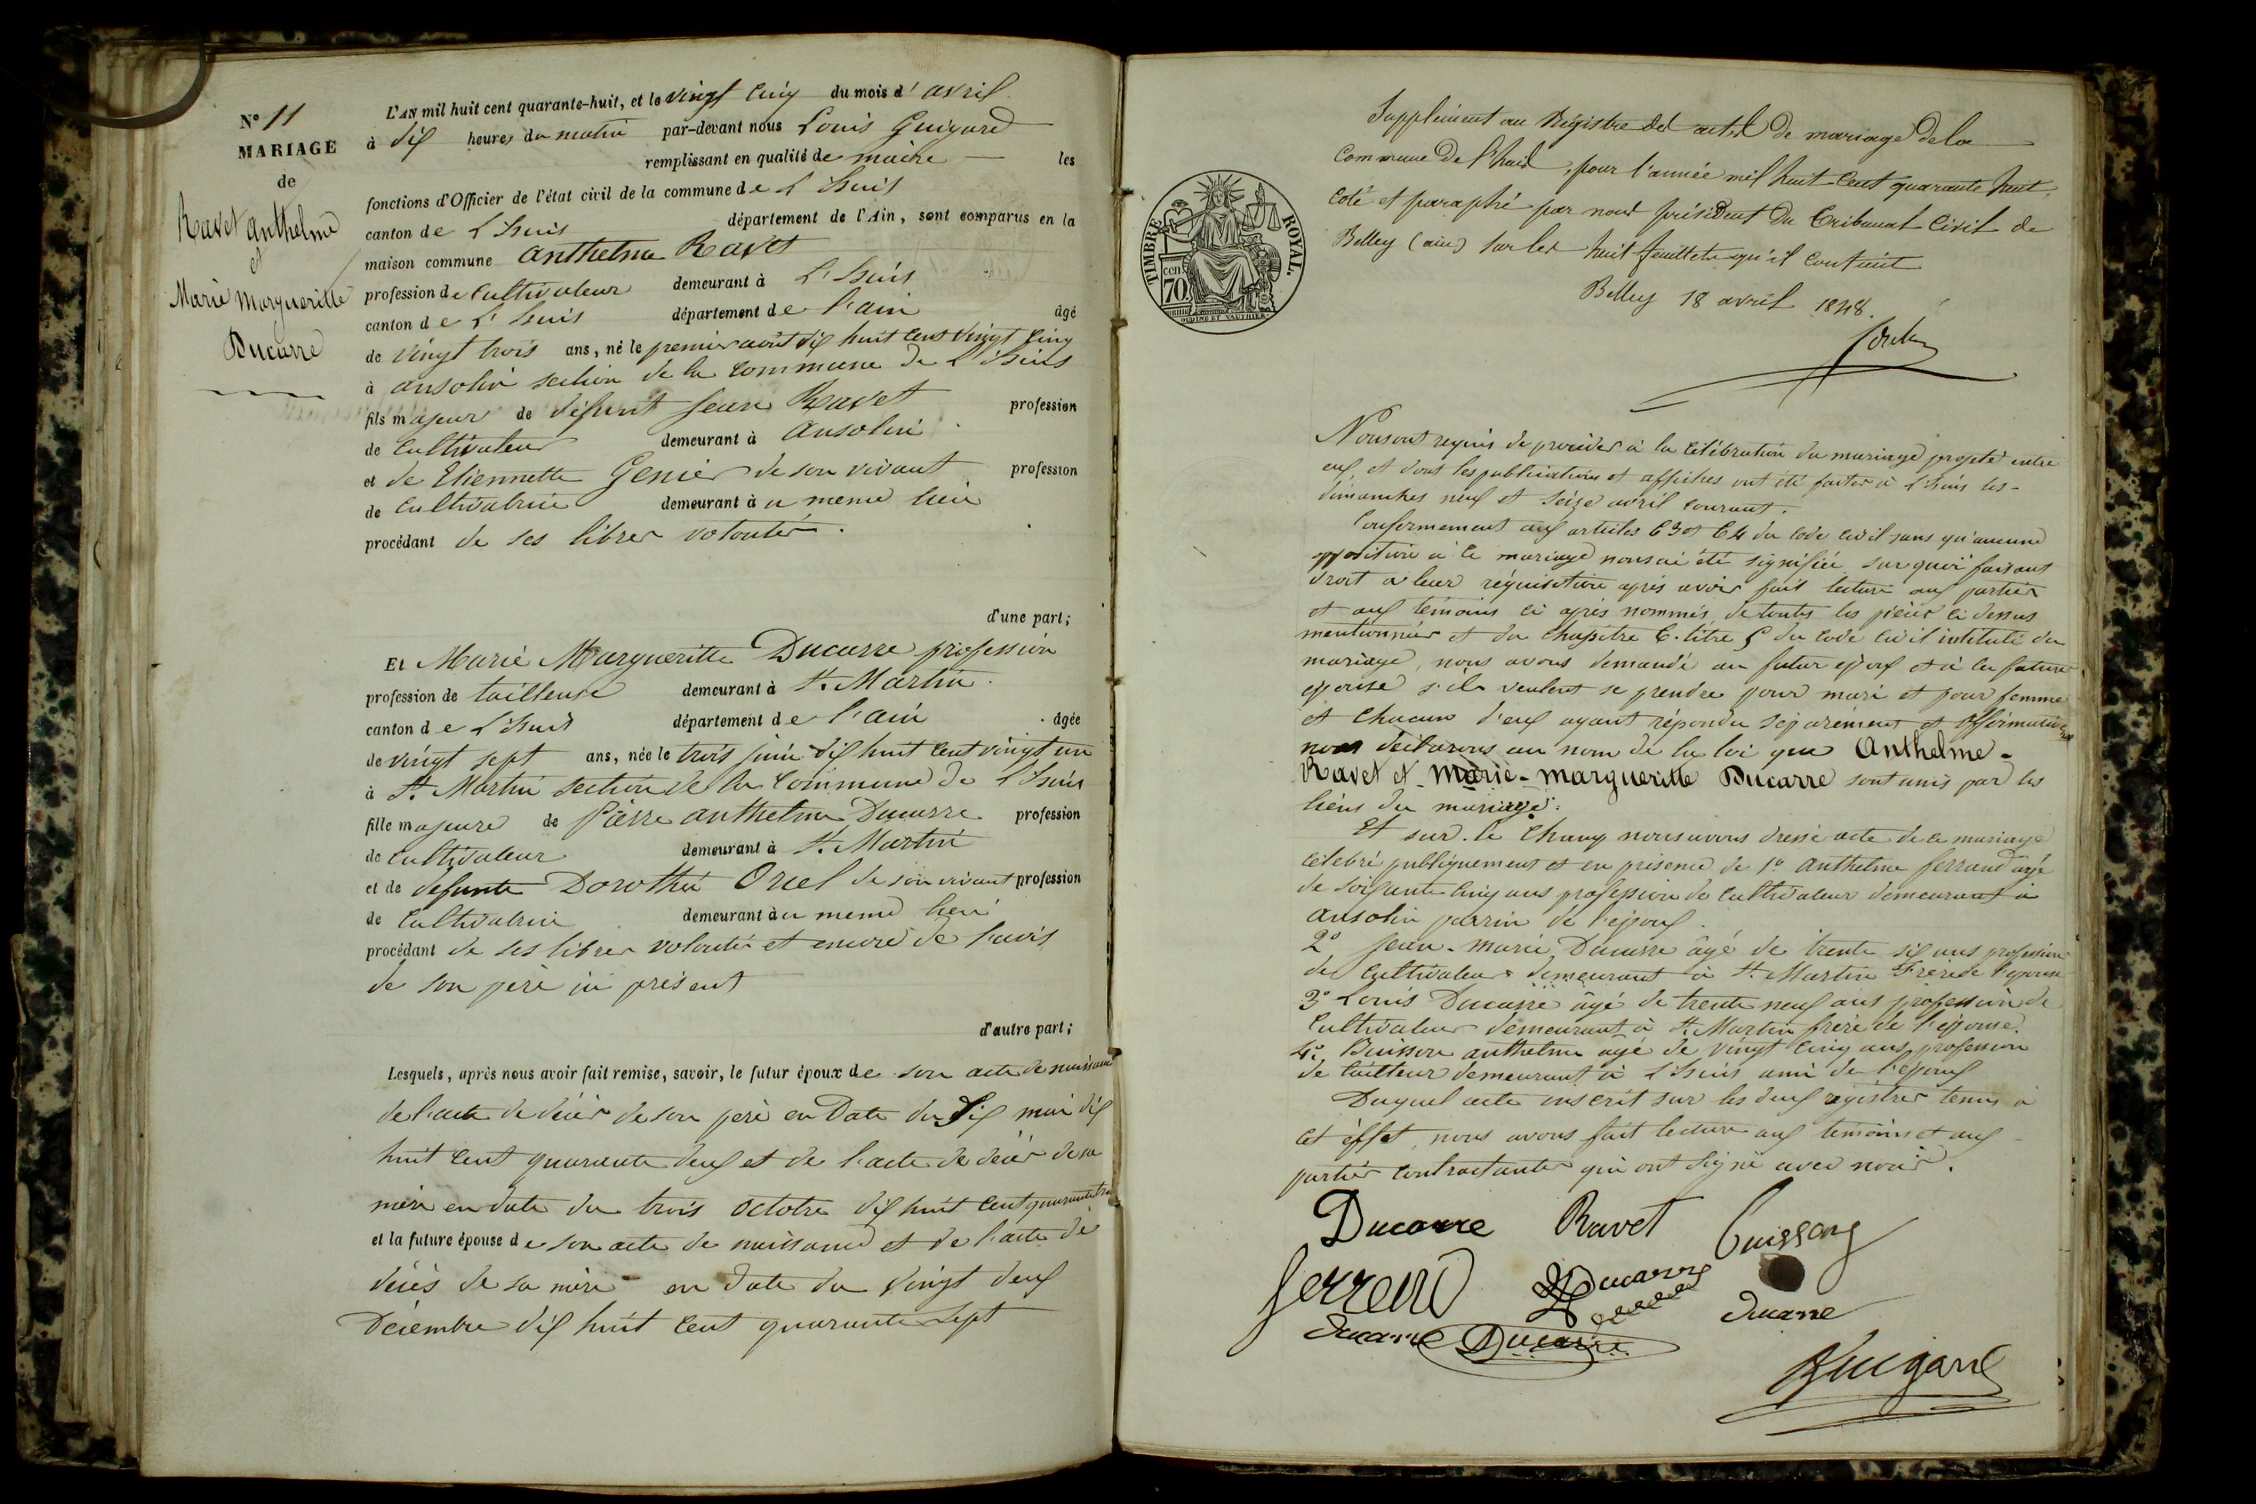 N° 11
MARIAGE
de
Ravet Anthelme
et
Marie Margueritte
Ducarre
L'AN mil huit cent quarante-huit, et le vingt cinq du mois d'avril
à dix heures du matin par-devant nous Louis Guigard
remplissant en qualité de maire les
fonctions d'Officier de l'état civil de la commune de L'huis
canton de L'huis département de l'Ain, sont comparus en la
maison commune Anthelme Ravet
profession de cultivateur demeurant à L'huis
canton de L'huis département de l'ain âgé
de vingt trois ans, né le premier août dix huit cent vingt cinq
à ansolin section de la commune de L'huis
fils majeur de défunt Jean Ravet profession
de cultivateur demeurant à ansolin
et de Etiennette Genier de son vivant profession
de cultivatrice demeurant au meme lieu
procédant de ses libres volontés.
d'une part;
Et Marie Margueritte Ducarre profession
profession de tailleuse demeurant à St. Martin
canton de L'huis département de l'ain âgée
de vingt sept ans, née le trois juin dix huit cent vingt un
à St. Martin section de la commune de L'huis
fille majeure de Pierre anthelme Ducarre profession
de cultivateur demeurant à St. Martin
et de defunte Dorothée Oriel de son vivant profession
de cultivatrice demeurant au meme lieu
procédant de ses libres volontés et encore de l'avis
de son père ici présent
d'autre part;
Lesquels, après nous avoir fait remise, savoir, le futur époux de son acte de naissance
de l'acte de décès de son père en Date du dix mai dix
huit cent quarante deux et de l'acte de décès de sa
mère en date du trois octobre dix huit cent quarante
et la future épouse de son acte de naissance et de l'acte de
décès de sa mère en date du vingt deux
Décembre dix huit cent quarante sept
Supplément au Régistre des actes de mariage de la
Commune de l'huis, pour l'année mil huit-cent quarante huit,
coté et paraphé par nous président du tribunal civil de
Belley (ain) sur les huit feuillets qu'il contient
Belley 18 avril 1848.
TIMBRE ROYAL.
cen.
70.
Nous ont requis de procéder à la célébration du mariage projeté entre
eux et dont les publications et affiches ont été faites à L'huis les
dimanches neuf et seize avril courant.
Conformement aux articles 63 et 64 du code civil sans qu'aucune
opposition à ce mariage nous ai été signifiée sur quoi faisant
droit à leur réquisition après avoir fait lecture aux parties
et aux témoins ci après nommés de toutes les pièces ci dessus
mentionnées et du chapitre 6. titre 5 du code civil intitulé du
mariage, nous avons demandé au futur époux et à la future
épouse s'ils veulent se prendre pour mari et pour femme
et chacun d'eux ayant répondu séparément et affirmativement
nous déclarons au nom de la loi que Anthelme-
Ravet et Marie-Margueritte Ducarre sont unis par les
liens du mariage.
Et sur le champ nous avons dressé acte de ce mariage
célébré publiquement et en présence de 1° anthelme ferrand âgé
de soixante cinq ans profession de cultivateur demeurant à
ansolin parrin de l'époux.
2° Jean-Marie Ducarre âgé de trente six ans profession
de cultivateur demeurant à St. Martin Frère de l'épouse
3° Louis Ducarre âgé de trente neuf ans profession de
cultivateur demeurant à St. Martin frère de l'épouse.
4°. Buisson anthelme âgé de vingt cinq ans profession
de tailleur demeurant à L'huis ami de l'époux
Duquel acte inscrit sur les deux régistres tenus à
cet éffet, nous avons fait lecture aux témoins et aux
parties contractantes qui ont signé avec nous.
Ducarre Ravet buisson
ferrand Ducarre
Ducarre Ducarre Ducarre
Guigard